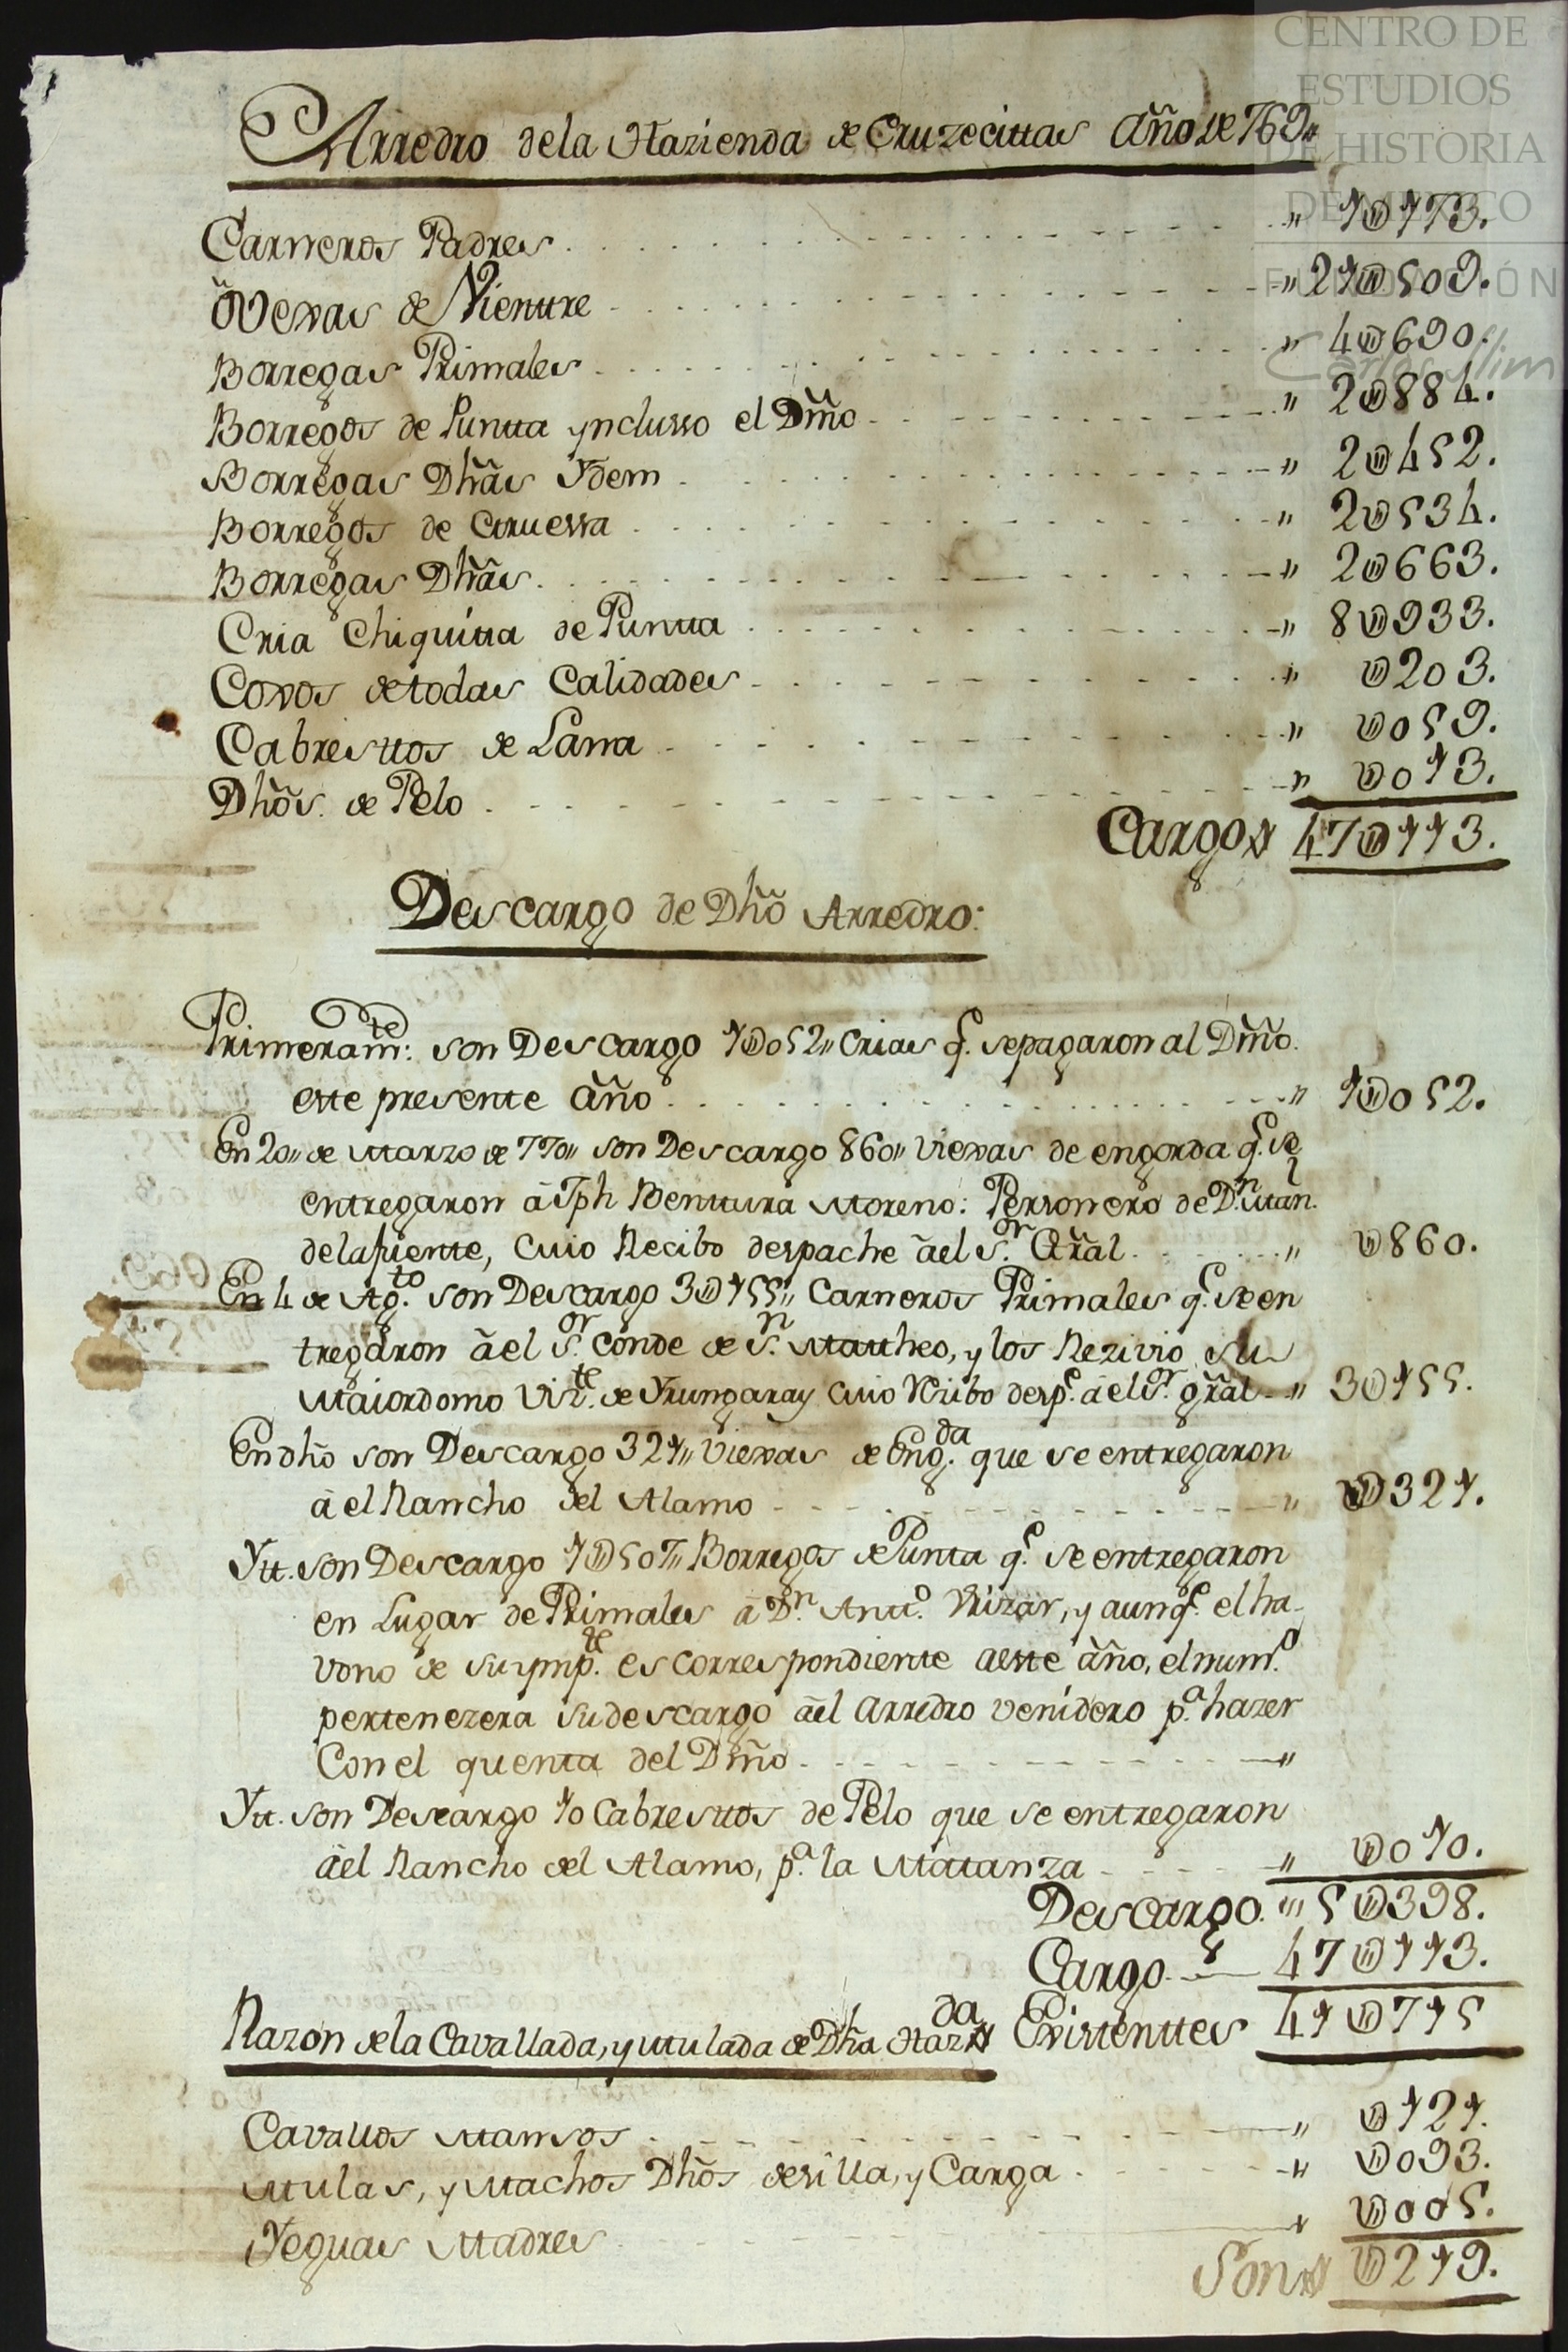 CENTRO DE
ESTUDIOS
DE HISTORIA
DE MÉXICO
FUNDACIÓN
Carlos Slim
Arredro dela Hazienda de Cruzecittas Año de 769„
Carneros Padres . . . „ 1U173.
Ovexas de Vienttre . . . „ 21U509.
Borregas Primales . . . „ 4U690.
Borregos de Puntta ynclusso el Dm̃o . . . „ 2U884.
Borregas Dhãs Ydem . . . „ 2U452.
Borregos de Gruessa . . . „ 2U534.
Borregas Dhãs . . . „ 2U663.
Cria Chiquitta de Puntta . . . „ 8U933.
Coxos de todas Calidades . . . „ U203.
Cabresttos de Lana . . . „ U059.
Dhõs. de Pelo . . . „ U013.
Cargo 47U113.
Descargo de Dhõ Arredro:
Primeram.te: son Descargo 1U052„ Crias q.e sepagaron al Dm̃o.
este presente Año . . . „ 1U052.
En 20„ de Marzo de 770„ son Descargo 860„ Viexas de engorda q.e se
entregaron â Jph Benttura Moreno: Personero de D.n Man.l
delafuente, Cuio Recibo despache âel S.or Gr̃al . . . „ U860.
En 4 de Ag.to son Descargo 3U155„ Carneros Primales q.e se en
tregaron âel S.or Conde de S.n Mattheo, y los Rezivio Su
Maiordomo Viz.te de Yrungaray Cuio Rẽibo desp.e âel S.or gr̃al „ 3U155.
En dhõ son Descargo 321„ Viexas de Eng.da que se entregaron
â el Rancho del Alamo . . . „ U321.
Ytt. son Descargo 1U507„ Borregos de Punta q.e se entregaron
en Lugar de Primales â D.n Antt.o Vizar, y aunq.e el ha-
vono de su ymp.te es Correspondiente aeste año, el num.o
pertenezera sudescargo âel Arredro venidero p.a hazer
Con el quenta del Dm̃o . . . „
Ytt. son Descargo 10 Cabresttos de Pelo que se entregaron
âel Rancho del Alamo, p.a la Matanza . . . „ U010.
Descargo. „ 5U398.
Cargo 47U113.
Razon dela Cavallada, y Mulada de Dhã Haz.da Existenttes 41U715
Cavallos Mansos . . . „ U121.
Mulas, y Machos Dhõs de silla, y Carga . . . „ U093.
Yeguas Madres . . . „ U005.
Son U219.